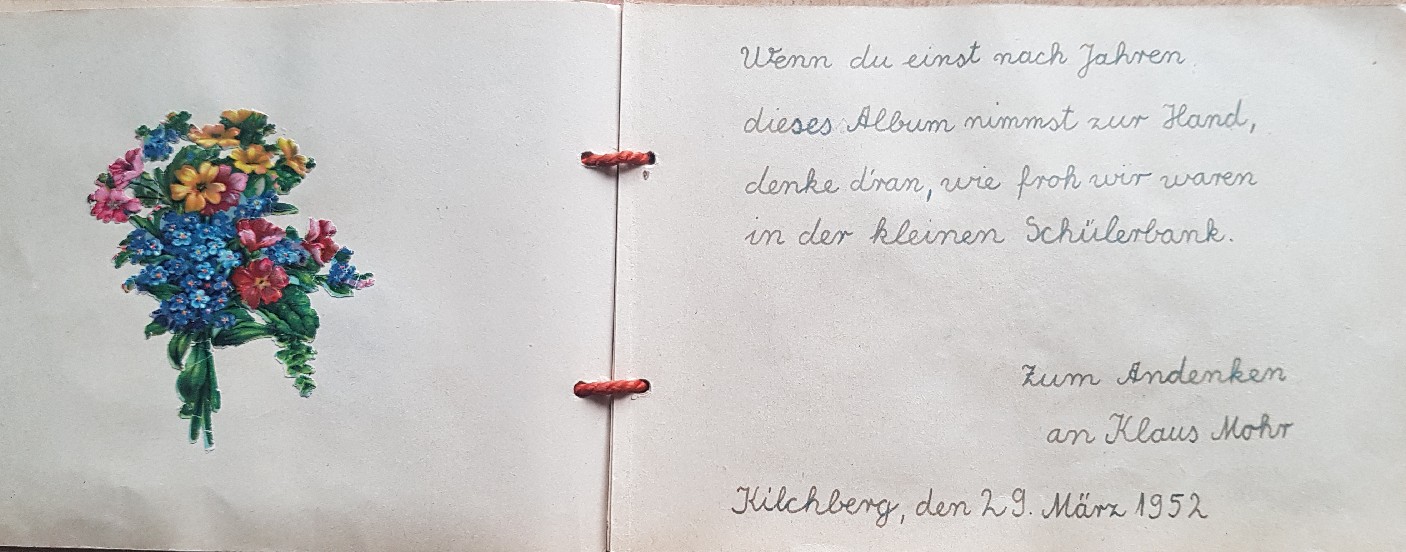 Wenn du einst nach Jahren
dieses Album nimmst zur Hand,
denke d'ran, wie froh wir waren
in der kleinen Schülerbank.
Zum Andenken
an Klaus Mohr
Kilchberg, den 29. März 1952